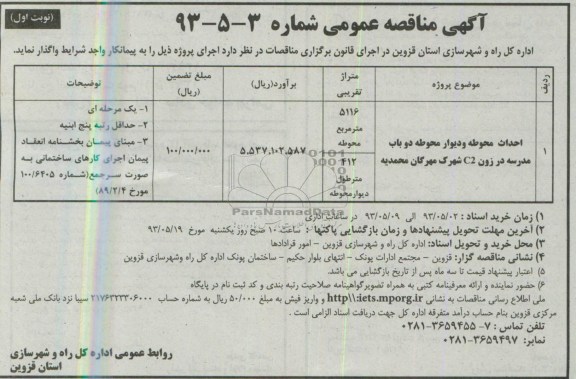 (نوبت اول)
آگهی مناقصه عمومی شماره ۳-۵-۹۳
اداره کل راه و شهرسازی استان قزوین در اجرای قانون برگزاری مناقصات در نظر دارد اجرای پروژه ذیل را به پیمانکار واجد شرایط واگذار نماید.
ردیف
موضوع پروژه
متراژ تقریبی
برآورد(ریال)
مبلغ تضمین (ریال)
توضیحات
۱
احداث محوطه ودیوار محوطه دو باب مدرسه در زون C2 شهرک مهرگان محمدیه
۵۱۱۶ مترمربع محوطه
۴۱۲ مترطول دیوارمحوطه
۵،۵۳۷،۱۰۲،۵۸۷
۱۰۰/۰۰۰/۰۰۰
۱- یک مرحله ای
۲- حداقل رتبه پنج ابنیه
۳- مبنای پیمان بخشنامه انعقاد
پیمان اجرای کارهای ساختمانی به
صورت سرجمع(شماره ۱۰۰/۶۴۰۵
مورخ ۸۹/۲/۴)
ParsNamadData
۱) زمان خرید اسناد : ۹۳/۰۵/۰۲ الی ۹۳/۰۵/۰۹ در ساعات اداری
۲) آخرین مهلت تحویل پیشنهادها و زمان بازگشایی پاکتها : ساعت ۱۰ صبح روز یکشنبه مورخ ۹۳/۰۵/۱۹
۳) محل خرید و تحویل اسناد: اداره کل راه و شهرسازی قزوین – امور قرادادها
۴) نشانی مناقصه گزار: قزوین – مجتمع ادارات پونک – انتهای بلوار حکیم – ساختمان پونک اداره کل راه وشهرسازی قزوین
۵) اعتبار پیشنهاد قیمت تا سه ماه پس از تاریخ بازگشایی می باشد.
۶) حضور نماینده و ارائه معرفینامه کتبی به همراه تصویرگواهینامه صلاحیت رتبه بندی و کد ثبت نام در پایگاه
ملی اطلاع رسانی مناقصات به نشانی http\\:iets.mporg.ir و واریز فیش به مبلغ ۵۰/۰۰۰ ریال به شماره حساب ۲۱۷۶۳۲۳۳۰۶۰۰۰ سیبا نزد بانک ملی شعبه
مرکزی قزوین بنام حساب درآمد متفرقه اداره کل جهت دریافت اسناد الزامی است .
تلفن تماس : ۷-۳۶۵۹۴۵۵-۰۲۸۱
نمابر: ۳۶۵۹۴۹۷-۰۲۸۱
روابط عمومی اداره کل راه و شهرسازی
استان قزوین